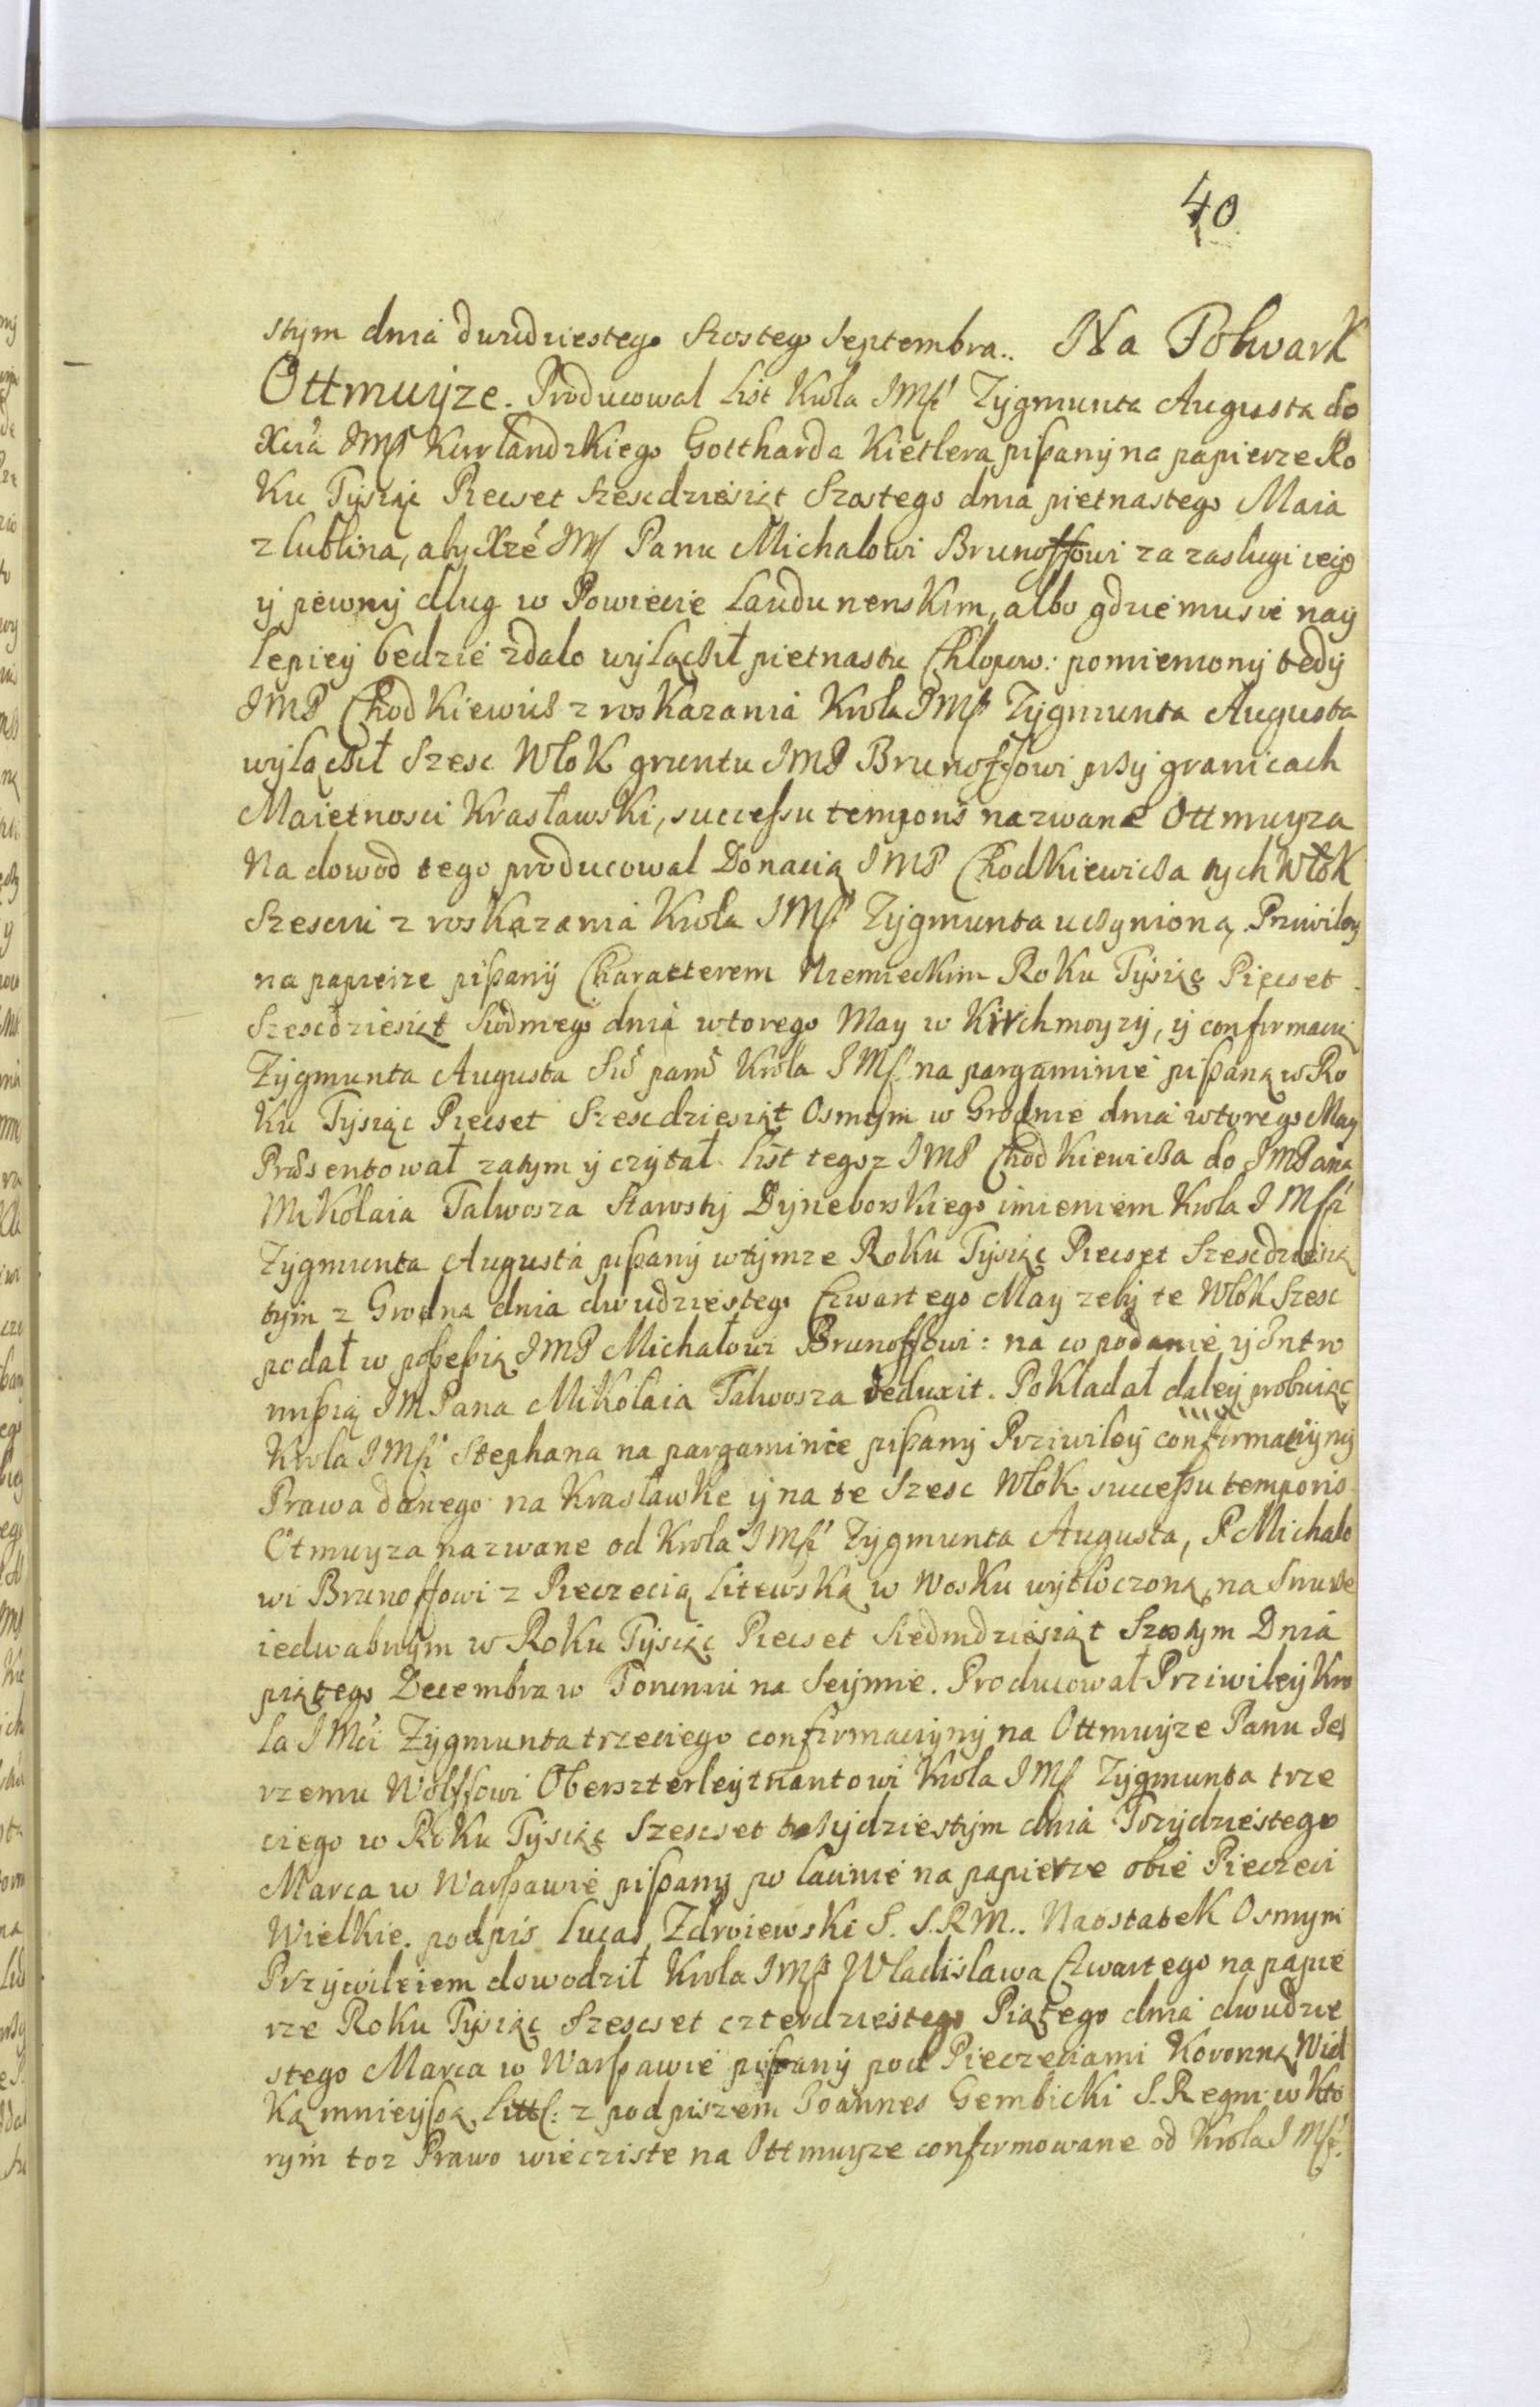 40
stym dnia dwudziestego szostego Septembra.. Na Folwark
Ottmuyze. Producowal List Krola JMsci Zygmunta Augusta do
Xcia JMsci Kurlandzkiego Gottharda Kietlera pißany na papierze Ro
Ku Tysiąc Piecset szescdziesiąt Szostego dnia pietnastego Maia
z lublina, aby Xzé JMs Panu Michalowi Brunoffowi za zaslugi ieig
y pewny dlug w Powiecie Laudunenskim, albo gdzie mu sie nay
lepiey bedzie zdalo wyłączył pietnastu Chlopow: pomieniony tedy
JMP Chodkiewicz z roskazania Krola JMsci Zygmunta Augusta
wyłączył szesc Włok gruntu JMP Brunoffowi przy granicach
Maietnosci Krasławski, successu temporis nazwane Ottmuyza
Na dowod tego producowal Donacią JMP Chodkiewicza tych Włok
Szesciu z roskazania Krola JMsci Zygmunta uczynioną. Prziwiley
na papierze pißany Charakterem Niemieckim Roku Tysiąc Piecset
Szescdziesiąt Siodmego dnia wtorego May w Kirchmoyzy, y confirmacią
Zygmunta Augusta Krola JMsci na pargaminie pißaną w Ro
Ku Tysiąc Piecset Szescdziesiąt Osmym w Grodnie dnia wtorego May
Præsentował zatym y czytał List tegoz JMP Chodkiewicza do JMPana
Mikołaia Talwosza Starosty Dyneborskiego imieniem Krola JMsci
Zygmunta Augusta pißany w tymze Roku Tysiąc Piecset Szescdziesią
tym z Grodna dnia dwudziestego Czwartego May zeby te Włok Szesc
podał w poßeßią JMP Michałowi Brunoffowi: na co podanie y Intro
mißią JMPana Mikołaia Talwosza deduxit. Pokładał daley probuiąc
Krola JMsci Stephana na pargaminie pißany Prziwiley confirmacyiny
Prawa danego na Krasławke y na te Szesc Włok successu temporis
Otmuyza nazwane od Krola JMsci Zygmunta Augusta, P. Michalo
wi Brunoffowi z Pieczecią Litewską w Wosku wytłoczoną, na Snurze
iedwabnym w Roku Tysiąc Piecset Siedmdziesiąt Szostym Dnia
piątego Decembra w Toruniu na Seymie. Producował Prziwiley Kro
la JMci Zygmunta trzeciego confirmacyiny na Ottmuyze Panu Je
rzemu Wolffowi Oberszterleytnantowi Krola JMsci Zygmunta trze
ciego w Roku Tysiąc Szescset trzydziestym dnia Trzydziestego
Marca w Warßawie pißany po lacinie na papierze obie Pieczeci
Wielkie. podpis Lucas Zdroiewski S. S.R.M.. Naostatek Osmym
Przywileiem dowodził Krola JMsci Władislawa Czwartego na papie
rze Roku Tysiąc Szescset czterdziestego Piątego dnia dwudzie
stego Marca w Warßawie pißany pod Pieczeciami Koronną Wiel
Ką mnieyßą Litt: z podpiszem Joannes Gembicki S. Regni w kto
rym toz Prawo wiecziste na Ottmuyze confirmowane od Krola JMsci